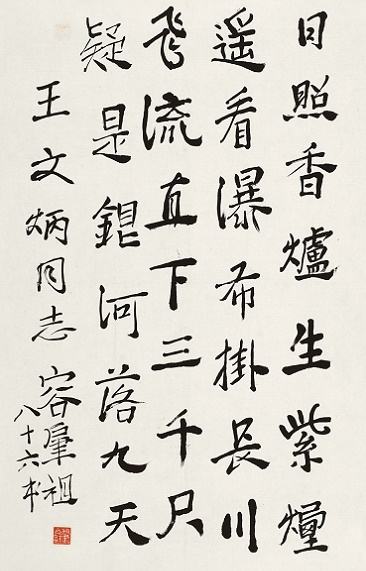 日照香爐生紫煙
遙看瀑布掛長川
飛流直下三千尺
疑是銀河落九天
王文炳同志 容肇祖
八十六